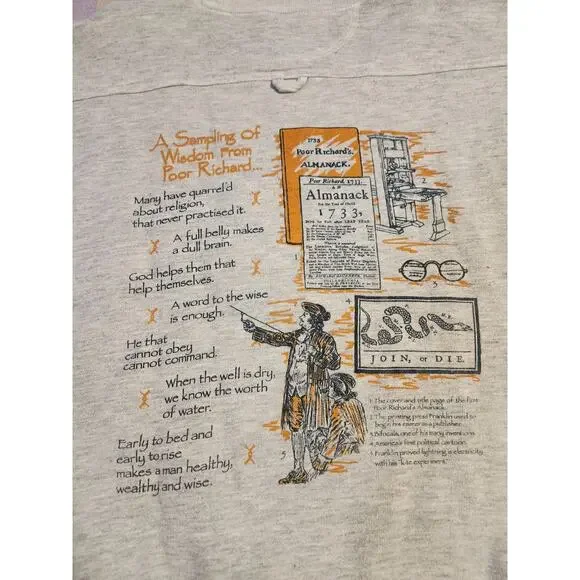 A Sampling of
Wisdom From
Poor Richard...
Many have quarrel'd
about religion,
that never practised it.
A full belly makes
a dull brain.
God helps them that
help themselves.
A word to the wise
is enough.
He that
cannot obey
cannot command.
When the well is dry,
we know the worth
of water.
Early to bed and
early to rise
makes a man healthy,
wealthy and wise.
1733
Poor Richard's
ALMANACK.
Poor Richard, 1733.
Almanack
For the Year of Christ
1733,
1
2
3
4
JOIN, or DIE.
5
1. The cover and title page of the first
Poor Richard's Almanack.
2. The printing press Franklin used to
begin his career as a publisher.
3. Bifocals, one of his many inventions.
4. America's first political cartoon.
5. Franklin proved lightning is electricity
with his "kite experiment."